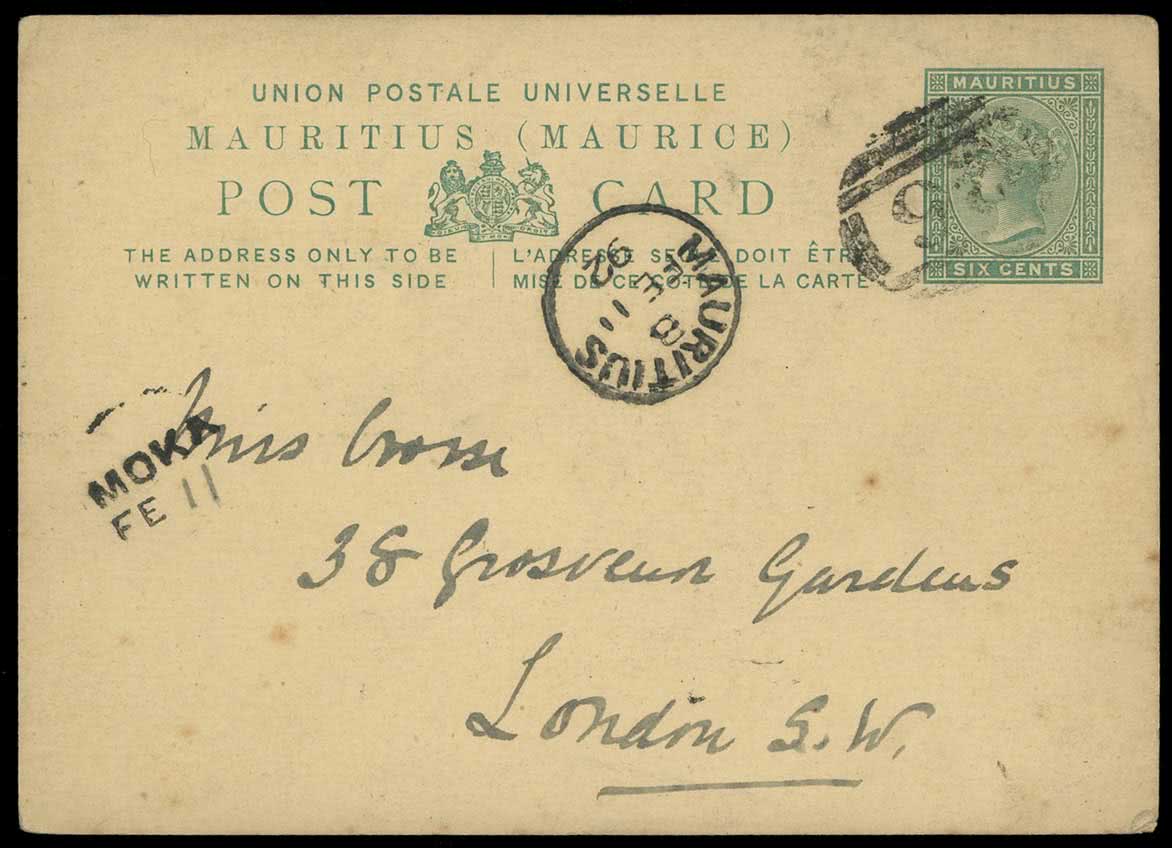 UNION POSTALE UNIVERSELLE
MAURITIUS (MAURICE)
POST CARD
THE ADDRESS ONLY TO BE
WRITTEN ON THIS SIDE
L'ADRESSE SEULE DOIT ÊTRE
MISE DE CE CÔTÉ DE LA CARTE
MAURITIUS
SIX CENTS
MAURITIUS
8
FE 11
92
MOKA
FE 11
Miss Crosse
38 Grosvenor Gardens
London S.W.